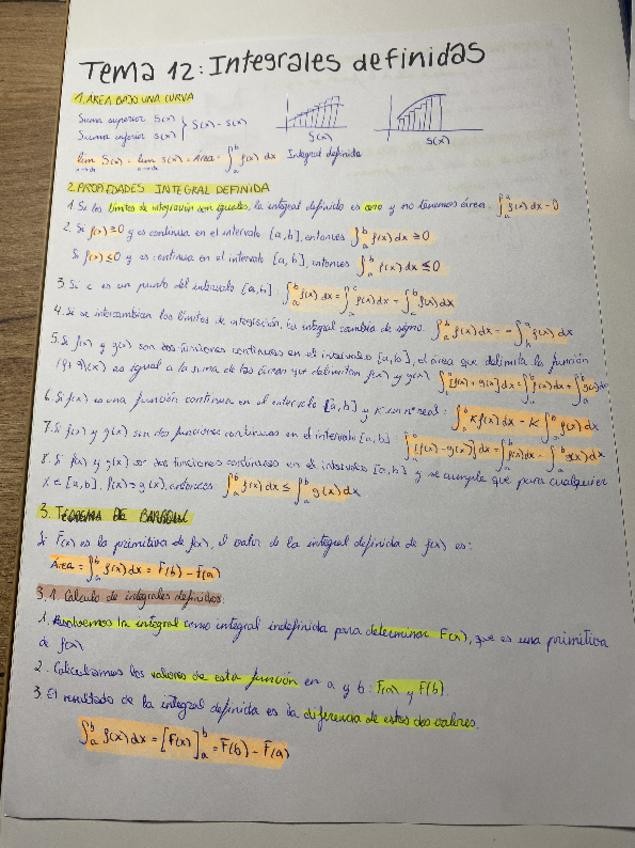 Tema 12: Integrales definidas
1. ÁREA BAJO UNA CURVA
Suma superior S(x)
Suma inferior s(x) } S(x) - s(x)
S(x) s(x)
lim S(x) = lim s(x) = Área = ∫ₐᵇ f(x) dx Integral definida
2. PROPIEDADES INTEGRAL DEFINIDA
1. Si los límites de integración son iguales, la integral definida es cero y no tenemos área. ∫ₐᵃ f(x) dx = 0
2. Si f(x) ≥ 0 y es continua en el intervalo [a,b], entonces ∫ₐᵇ f(x) dx ≥ 0
Si f(x) ≤ 0 y es continua en el intervalo [a,b], entonces ∫ₐᵇ f(x) dx ≤ 0
3. Si c es un punto del intervalo [a,b]: ∫ₐᵇ f(x) dx = ∫ₐᶜ f(x) dx + ∫ f(x) dx
4. Si se intercambian los límites de integración, la integral cambia de signo. ∫ₐᵇ f(x) dx = - ∫ f(x) dx
5. Si f(x) y g(x) son dos funciones continuas en el intervalo [a,b], el área que delimita la función
(f+g)(x) es igual a la suma de las áreas que delimitan f(x) y g(x) ∫ₐᵇ [f(x) + g(x)] dx = ∫ₐᵇ f(x) dx + ∫ₐᵇ g(x) dx
6. Si f(x) es una función continua en el intervalo [a,b] y K un nº real: ∫ₐᵇ K f(x) dx = K ∫ₐᵇ f(x) dx
7. Si f(x) y g(x) son dos funciones continuas en el intervalo [a,b]: ∫ₐᵇ [f(x) - g(x)] dx = ∫ₐᵇ f(x) dx - ∫ₐᵇ g(x) dx
8. Si f(x) y g(x) son dos funciones continuas en el intervalo [a,b] y se cumple que para cualquier
x ∈ [a,b], f(x) g(x), entonces ∫ₐᵇ f(x) dx ≤ ∫ₐᵇ g(x) dx
3. TEOREMA DE BARROW
Si F(x) es la primitiva de f(x), el valor de la integral definida de f(x) es:
Área = ∫ₐᵇ f(x) dx = F(b) - F(a)
3.1. Calculo de integrales definidas:
1. Resolvemos la integral como integral indefinida para determinar F(x), que es una primitiva
de f(x)
2. Calculamos los valores de esta función en a y b: F(a) y F(b).
3. El resultado de la integral definida es la diferencia de estos dos valores.
∫ₐᵇ f(x) dx = [F(x)]ₐᵇ = F(b) - F(a)